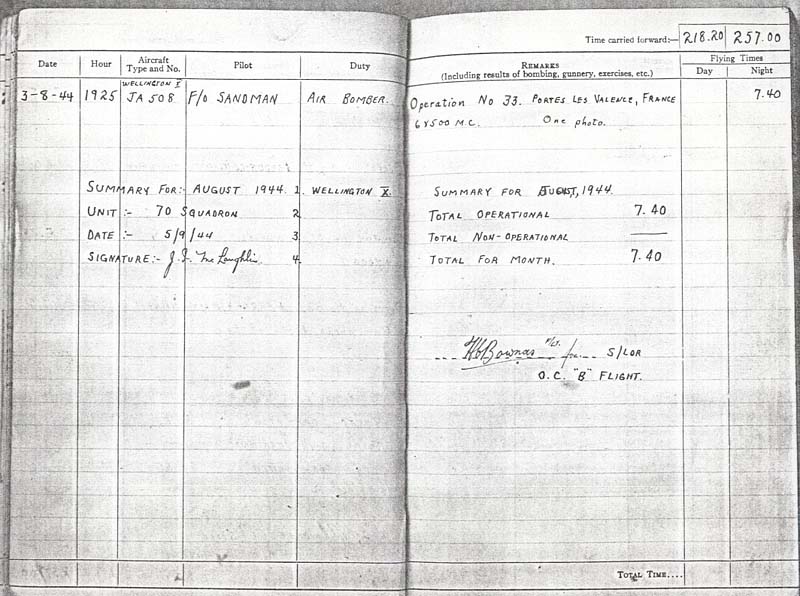 Date Hour Aircraft Type and No. Pilot Duty
WELLINGTON X
3-8-44 1925 JA 508 F/O SANDMAN AIR BOMBER.
SUMMARY FOR:- AUGUST 1944. 1. WELLINGTON X.
UNIT :- 70 SQUADRON 2
DATE :- 5/9/44 3.
SIGNATURE:- J. McLaughlin. 4.
Time carried forward:— 218.20 257.00
REMARKS
(Including results of bombing, gunnery, exercises, etc.)
Flying Times
Day Night
Operation No 33. PORTES LES VALENCE, FRANCE 7.40
6x500 M.C. One photo.
SUMMARY FOR AUGUST, 1944.
TOTAL OPERATIONAL 7.40
TOTAL NON-OPERATIONAL ——
TOTAL FOR MONTH. 7.40
Bownas F/Lt. for S/LDR
O.C. "B" FLIGHT.
TOTAL TIME....